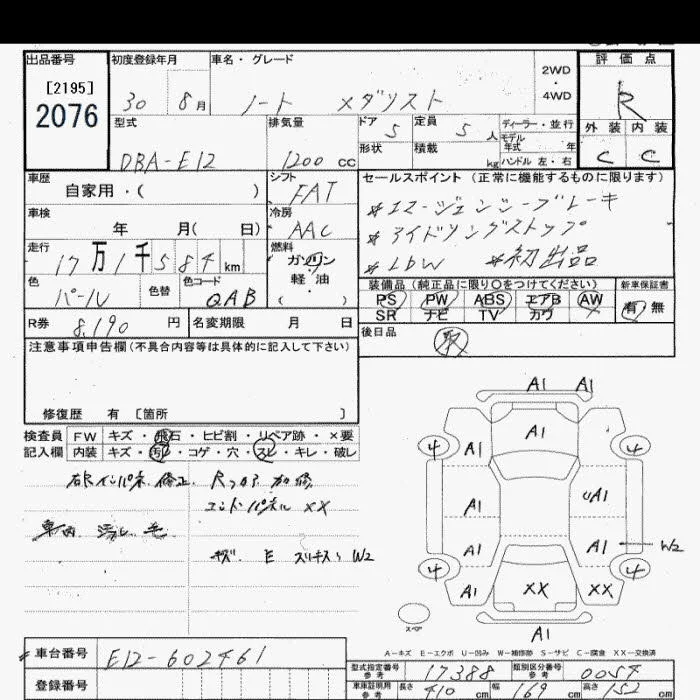 出品番号 初度登録年月 車名・グレード 評価点
[2195] 2WD
2076 30 8月 ノート メダリスト ・ R
4WD
型式 排気量 ドア 5 定員 5人 ディーラー・並行 外装 内装
モデル年式 年
DBA-E12 1200cc 形状 積載 kg ハンドル 左・右 C C
車歴 シフト セールスポイント (正常に機能するものに限ります)
自家用・( ) FAT *エマージェンシーブレーキ
車検 冷房 *アイドリングストップ
年 月( 日) AAC *LDW *初出品
走行 燃料
17万1千584km ガソリン
色 色替 色コード 軽油 装備品 (純正品に限り○をつけてください) 新車保証書
パール QAB ( ) PS PW ABS エアB AW 有 無
SR ナビ TV カワ
R券 8,190円 名変期限 月 日 後日品
取
注意事項申告欄(不具合内容等は具体的に記入して下さい)
修復歴 有 [箇所 ]
検査員 FW キズ・飛石・ヒビ割・リペア跡・×要
記入欄 内装 キズ・汚レ・コゲ・穴・スレ・キレ・破レ
右Rインパネ 修正 Rフロア 加修
エンドパネル XX
車内 汚レ 毛
キズ E スリキズ W2
A1 A1
A1
4 A1 4
A1 UA1
A1 A1 W2
4 4
A1 XX XX
スペア
A1
A-キズ E-エクボ U-凹み W-補修跡 S-サビ C-腐食 XX-交換済
*車台番号 E12-602461
登録番号
型式指定番号 参考 17388 類別区分番号 参考 0054
車庫証明用 参考 長さ 410cm 幅 169cm 高さ 152cm